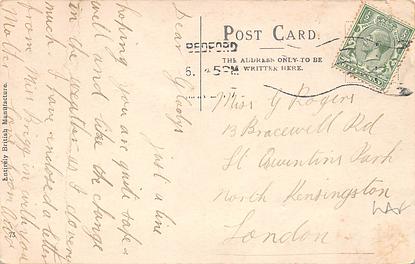 POST CARD.
THE ADDRESS ONLY TO BE
WRITTEN HERE.
BEDFORD
5 PM
Entirely British Manufacture.
Dear Gladys
just a line
hoping you are quite safe &
well and like the change
in the weather as I do very
much. I have enclosed a letter
from Miss in with yours
Mother
Miss G Rogers
13 Bracewell Rd
St Quintins Park
North Kensington
London